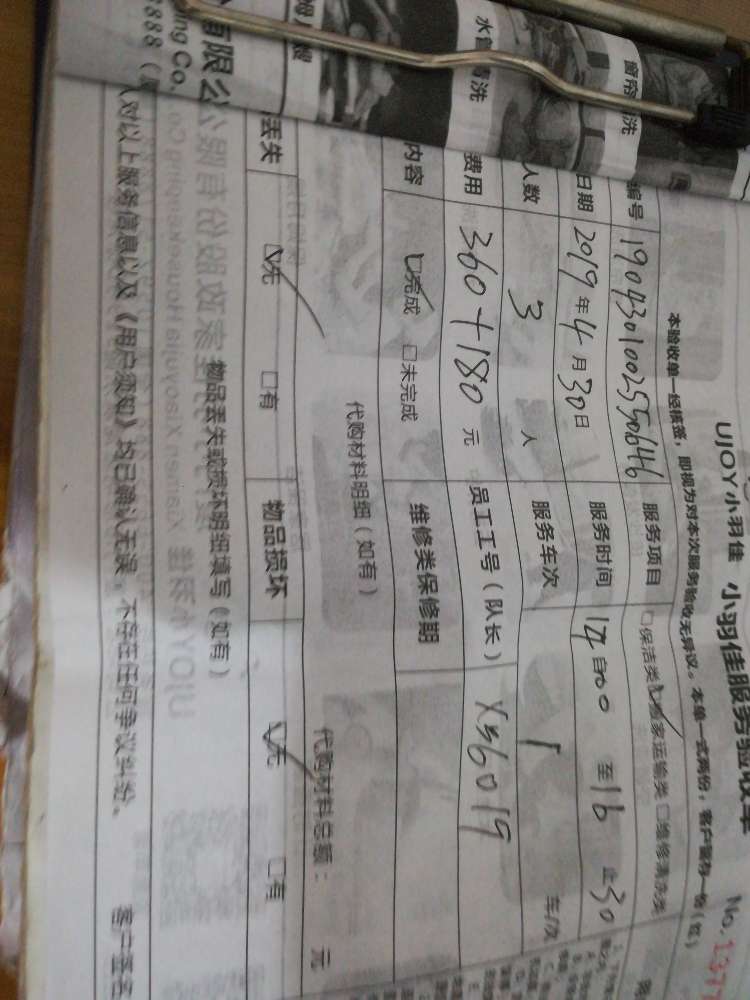 UJOY小羽佳 小羽佳服务验收单 No.137
本验收单一经核签，即视为对本次服务验收无异议。本单一式两份，客户留存一份（红）
编号 190430100255 服务项目 □保洁类 搬家运输类 □维修清洗类
日期 2019年4月30日 服务时间 14 至16 止30
人数 3 人 服务车次 1 车/次
费用 360+180 元 员工工号（队长） X56019
内容 完成 □未完成 维修类保修期
代购材料明细（如有） 代购材料总额： 元
丢失 无 □有 物品损坏 无 □有
物品丢失或损坏明细填写（如有）
对以上服务信息以及《用户须知》均已确认无误，不存在任何争议纠纷。 客户签名
有限公
ing Co.
8888
水管清洗
窗帘 洗